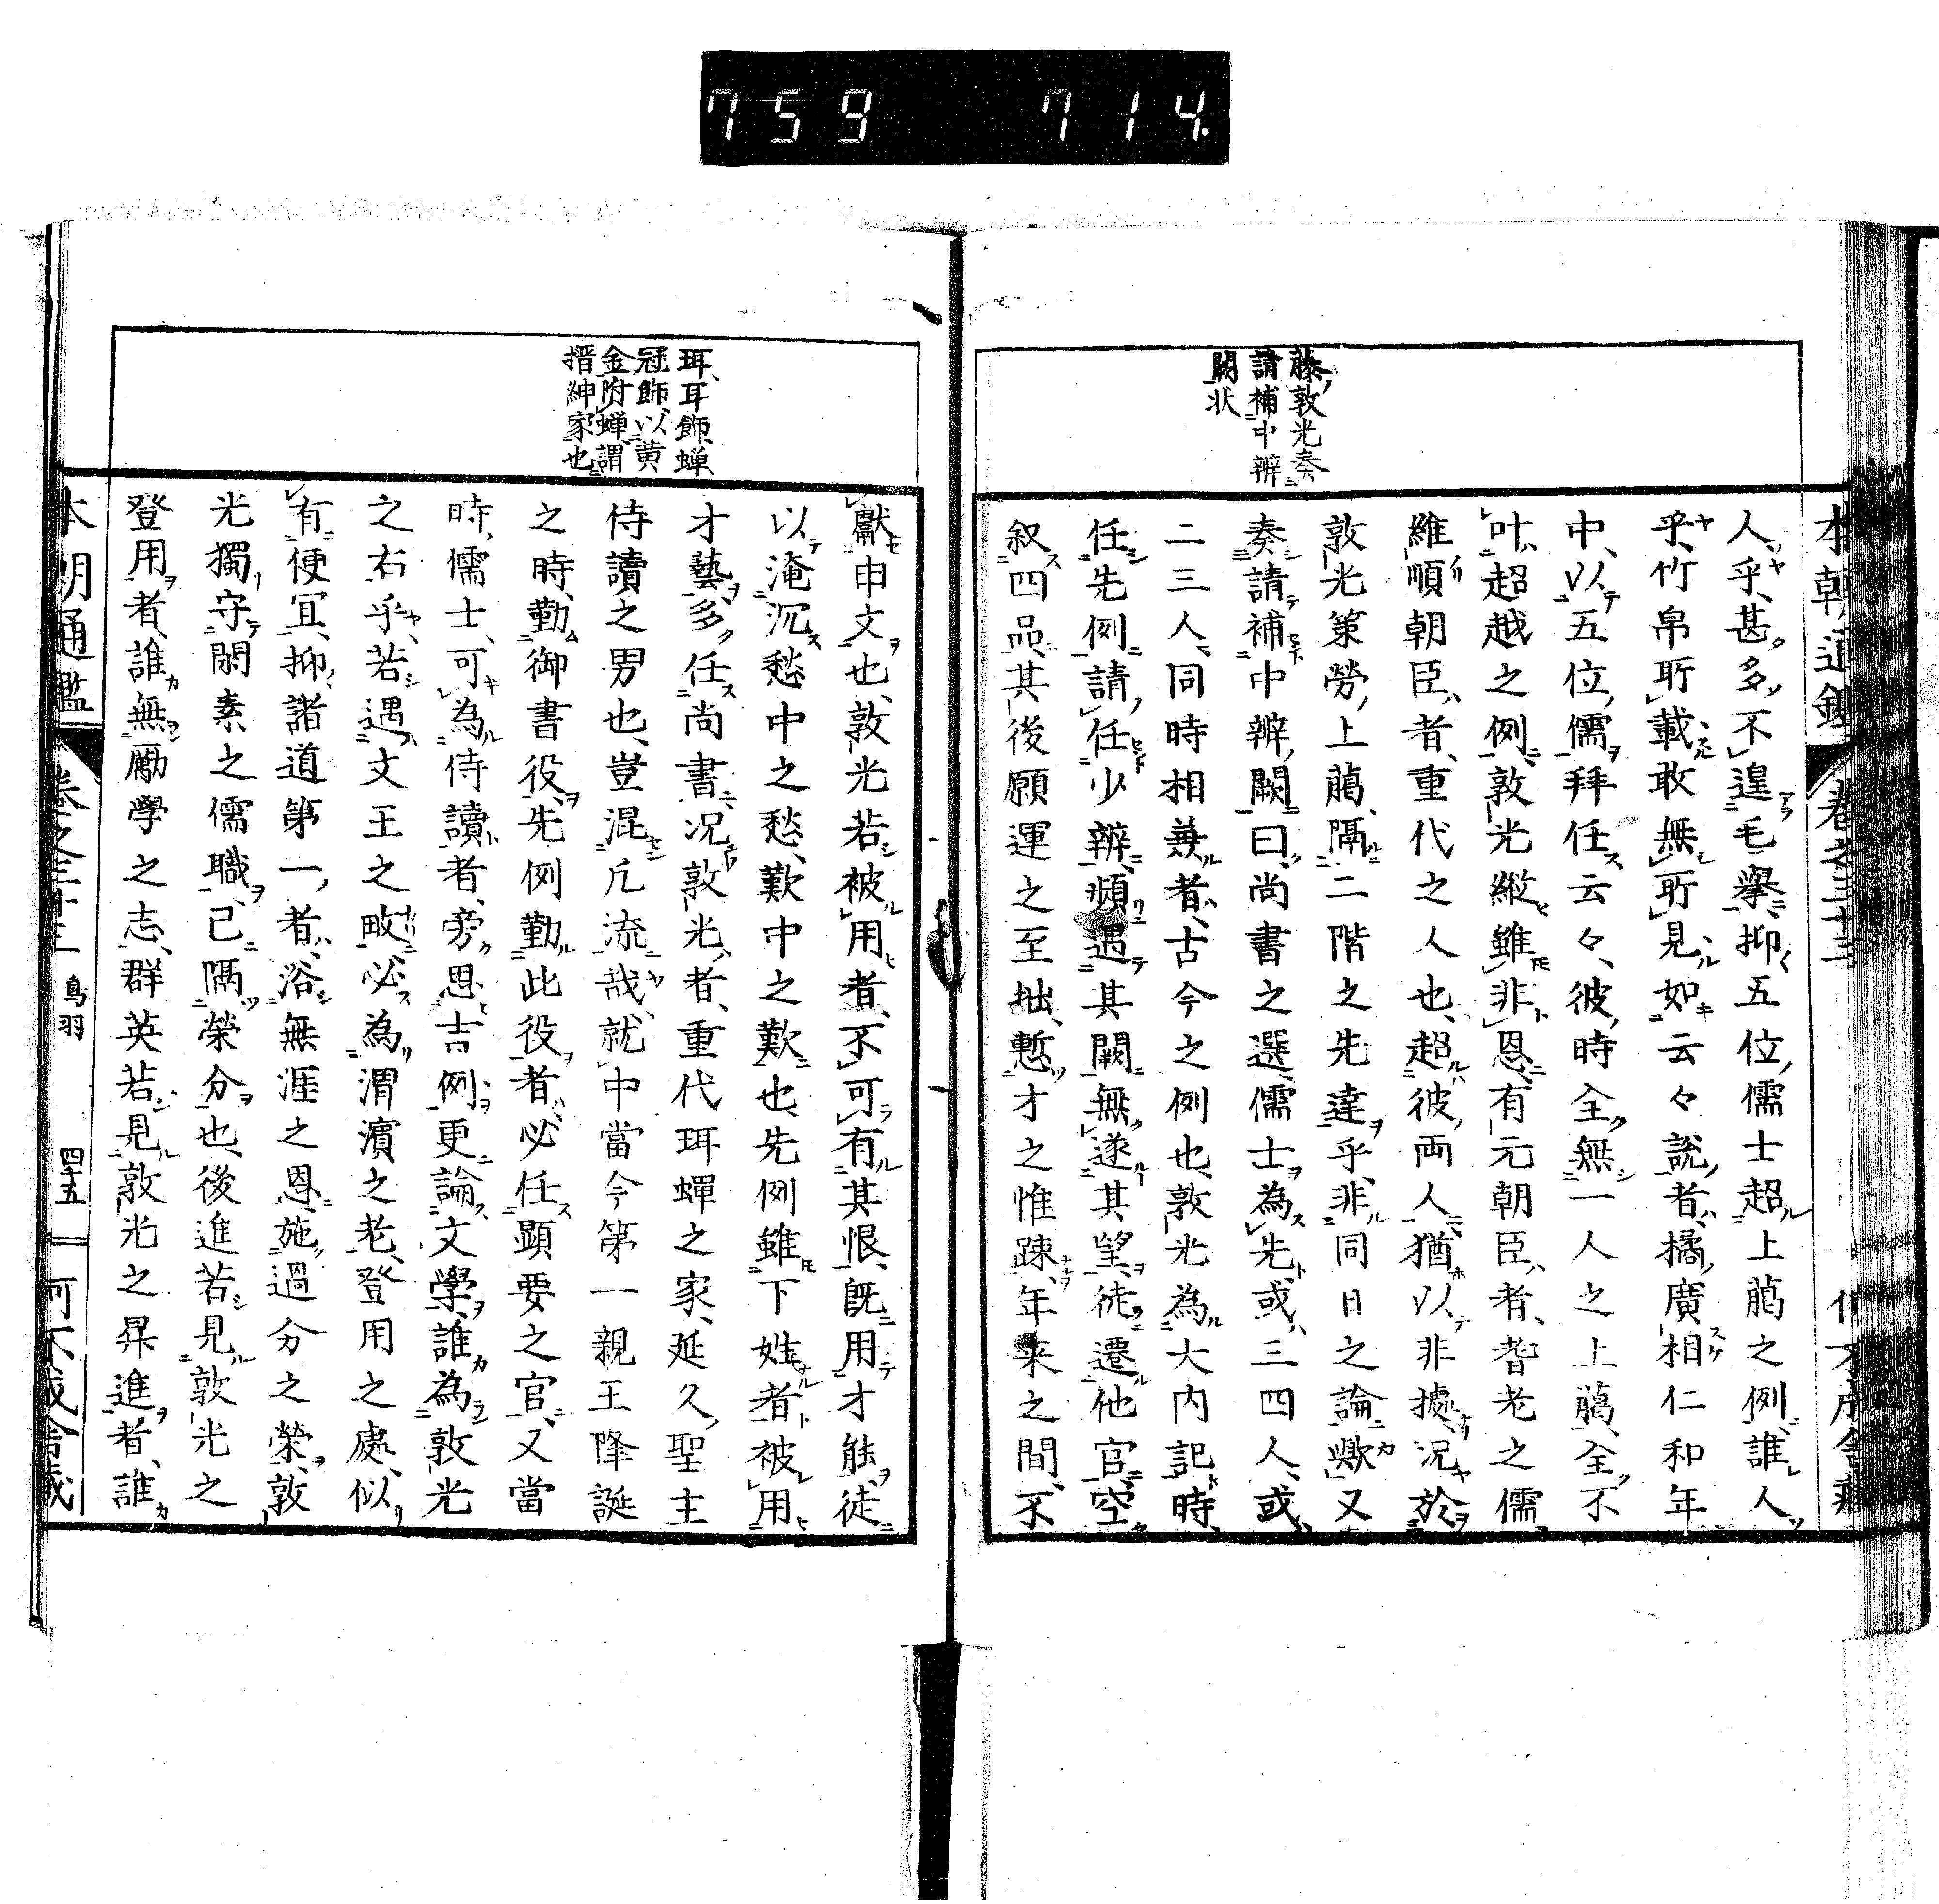 759 714.
藤敦光奏
請補中辨
闕状
人乎甚多不遑毛擧抑五位儒士超上﨟之例誰人
乎竹帛所載敢無所見如云々說者橘廣相仁和年
中以五位儒拜任云々彼時全無一人之上﨟全不
叶超越之例敦光縱雖非恩有元朝臣者耆老之儒
維順朝臣者重代之人也超彼両人猶以非據況於
敦光第勞上﨟隔二階之先達乎非同日之論歟又
奏請補中辨闕曰尚書之選儒士為先或三四人或
二三人同時相兼者古今之例也敦光為大内記時
任先例請任少辨頻遇其闕無遂其望徒遷他官空
叙四品其後願運之至拙慙才之惟踈年来之間不
珥耳飾蝉
冠飾以黄
金附蝉謂
搢紳家也
獻申文也敦光若被用者不可有其恨既用才能徒
以淹沉愁中之愁歎中之歎也先例雖下姓者被用
才藝多任尚書況敦光者重代珥蟬之家延久聖主
侍讀之男也豈混凡流哉就中當今第一親王降誕
之時勤御書役先例勤此役者必任顕要之官又當
時儒士可為侍讀者旁思吉例更論文學誰為敦光
之右乎若遇文王之畋必為渭濱之老登用之處似
有便冝抑諸道第一者浴無涯之恩施過分之榮敦
光獨守閑素之儒職已隔榮分也後進若見敦光之
登用者誰無勵學之志群英若見敦光之昇進者誰
本朝通鑑 卷之三十三 鳥羽 四十五